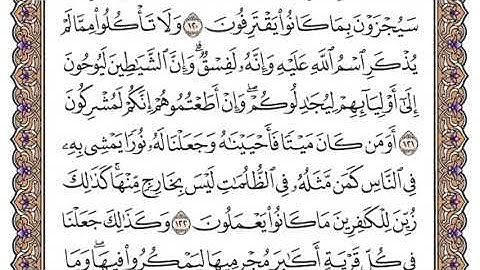 سَيُجْزَوْنَ بِمَا كَانُوا۟ يَقْتَرِفُونَ ١٢٠ وَلَا تَأْكُلُوا۟ مِمَّا لَمْ
يُذْكَرِ ٱسْمُ ٱللَّهِ عَلَيْهِ وَإِنَّهُۥ لَفِسْقٌ ۗ وَإِنَّ ٱلشَّيَٰطِينَ لَيُوحُونَ
إِلَىٰٓ أَوْلِيَآئِهِمْ لِيُجَٰدِلُوكُمْ ۖ وَإِنْ أَطَعْتُمُوهُمْ إِنَّكُمْ لَمُشْرِكُونَ
١٢١ أَوَمَن كَانَ مَيْتًا فَأَحْيَيْنَٰهُ وَجَعَلْنَا لَهُۥ نُورًا يَمْشِى بِهِۦ
فِى ٱلنَّاسِ كَمَن مَّثَلُهُۥ فِى ٱلظُّلُمَٰتِ لَيْسَ بِخَارِجٍ مِّنْهَا ۚ كَذَٰلِكَ
زُيِّنَ لِلْكَٰفِرِينَ مَا كَانُوا۟ يَعْمَلُونَ ١٢٢ وَكَذَٰلِكَ جَعَلْنَا
فِى كُلِّ قَرْيَةٍ أَكَٰبِرَ مُجْرِمِيهَا لِيَمْكُرُوا۟ فِيهَا ۖ وَمَا